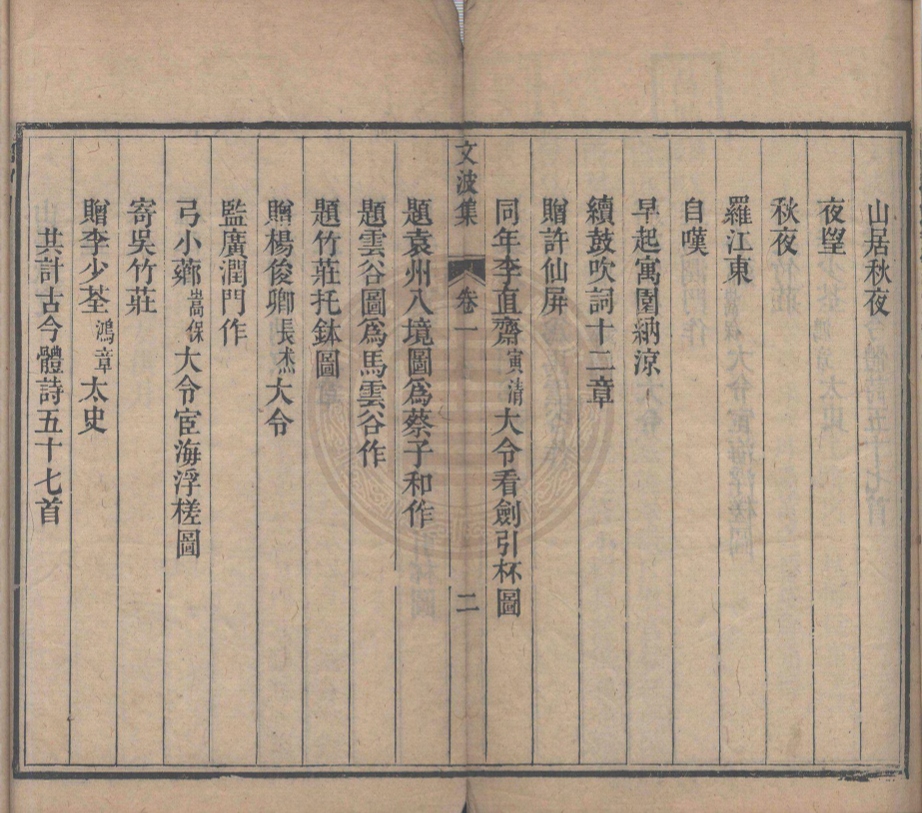 山居秋夜
夜朢
秋夜
羅江東
自嘆
早起寓園納涼
續鼓吹詞十二章
贈許仙屏
同年李直齋寅清大令看劍引杯圖
文波集 卷一 二
題袁州八境圖爲蔡子和作
題雲谷圖爲馬雲谷作
題竹莊托鉢圖
贈楊俊卿長杰大令
監廣潤門作
弓小薌嵩保大令宦海浮槎圖
寄吳竹莊
贈李少荃鴻章太史
共計古今體詩五十七首